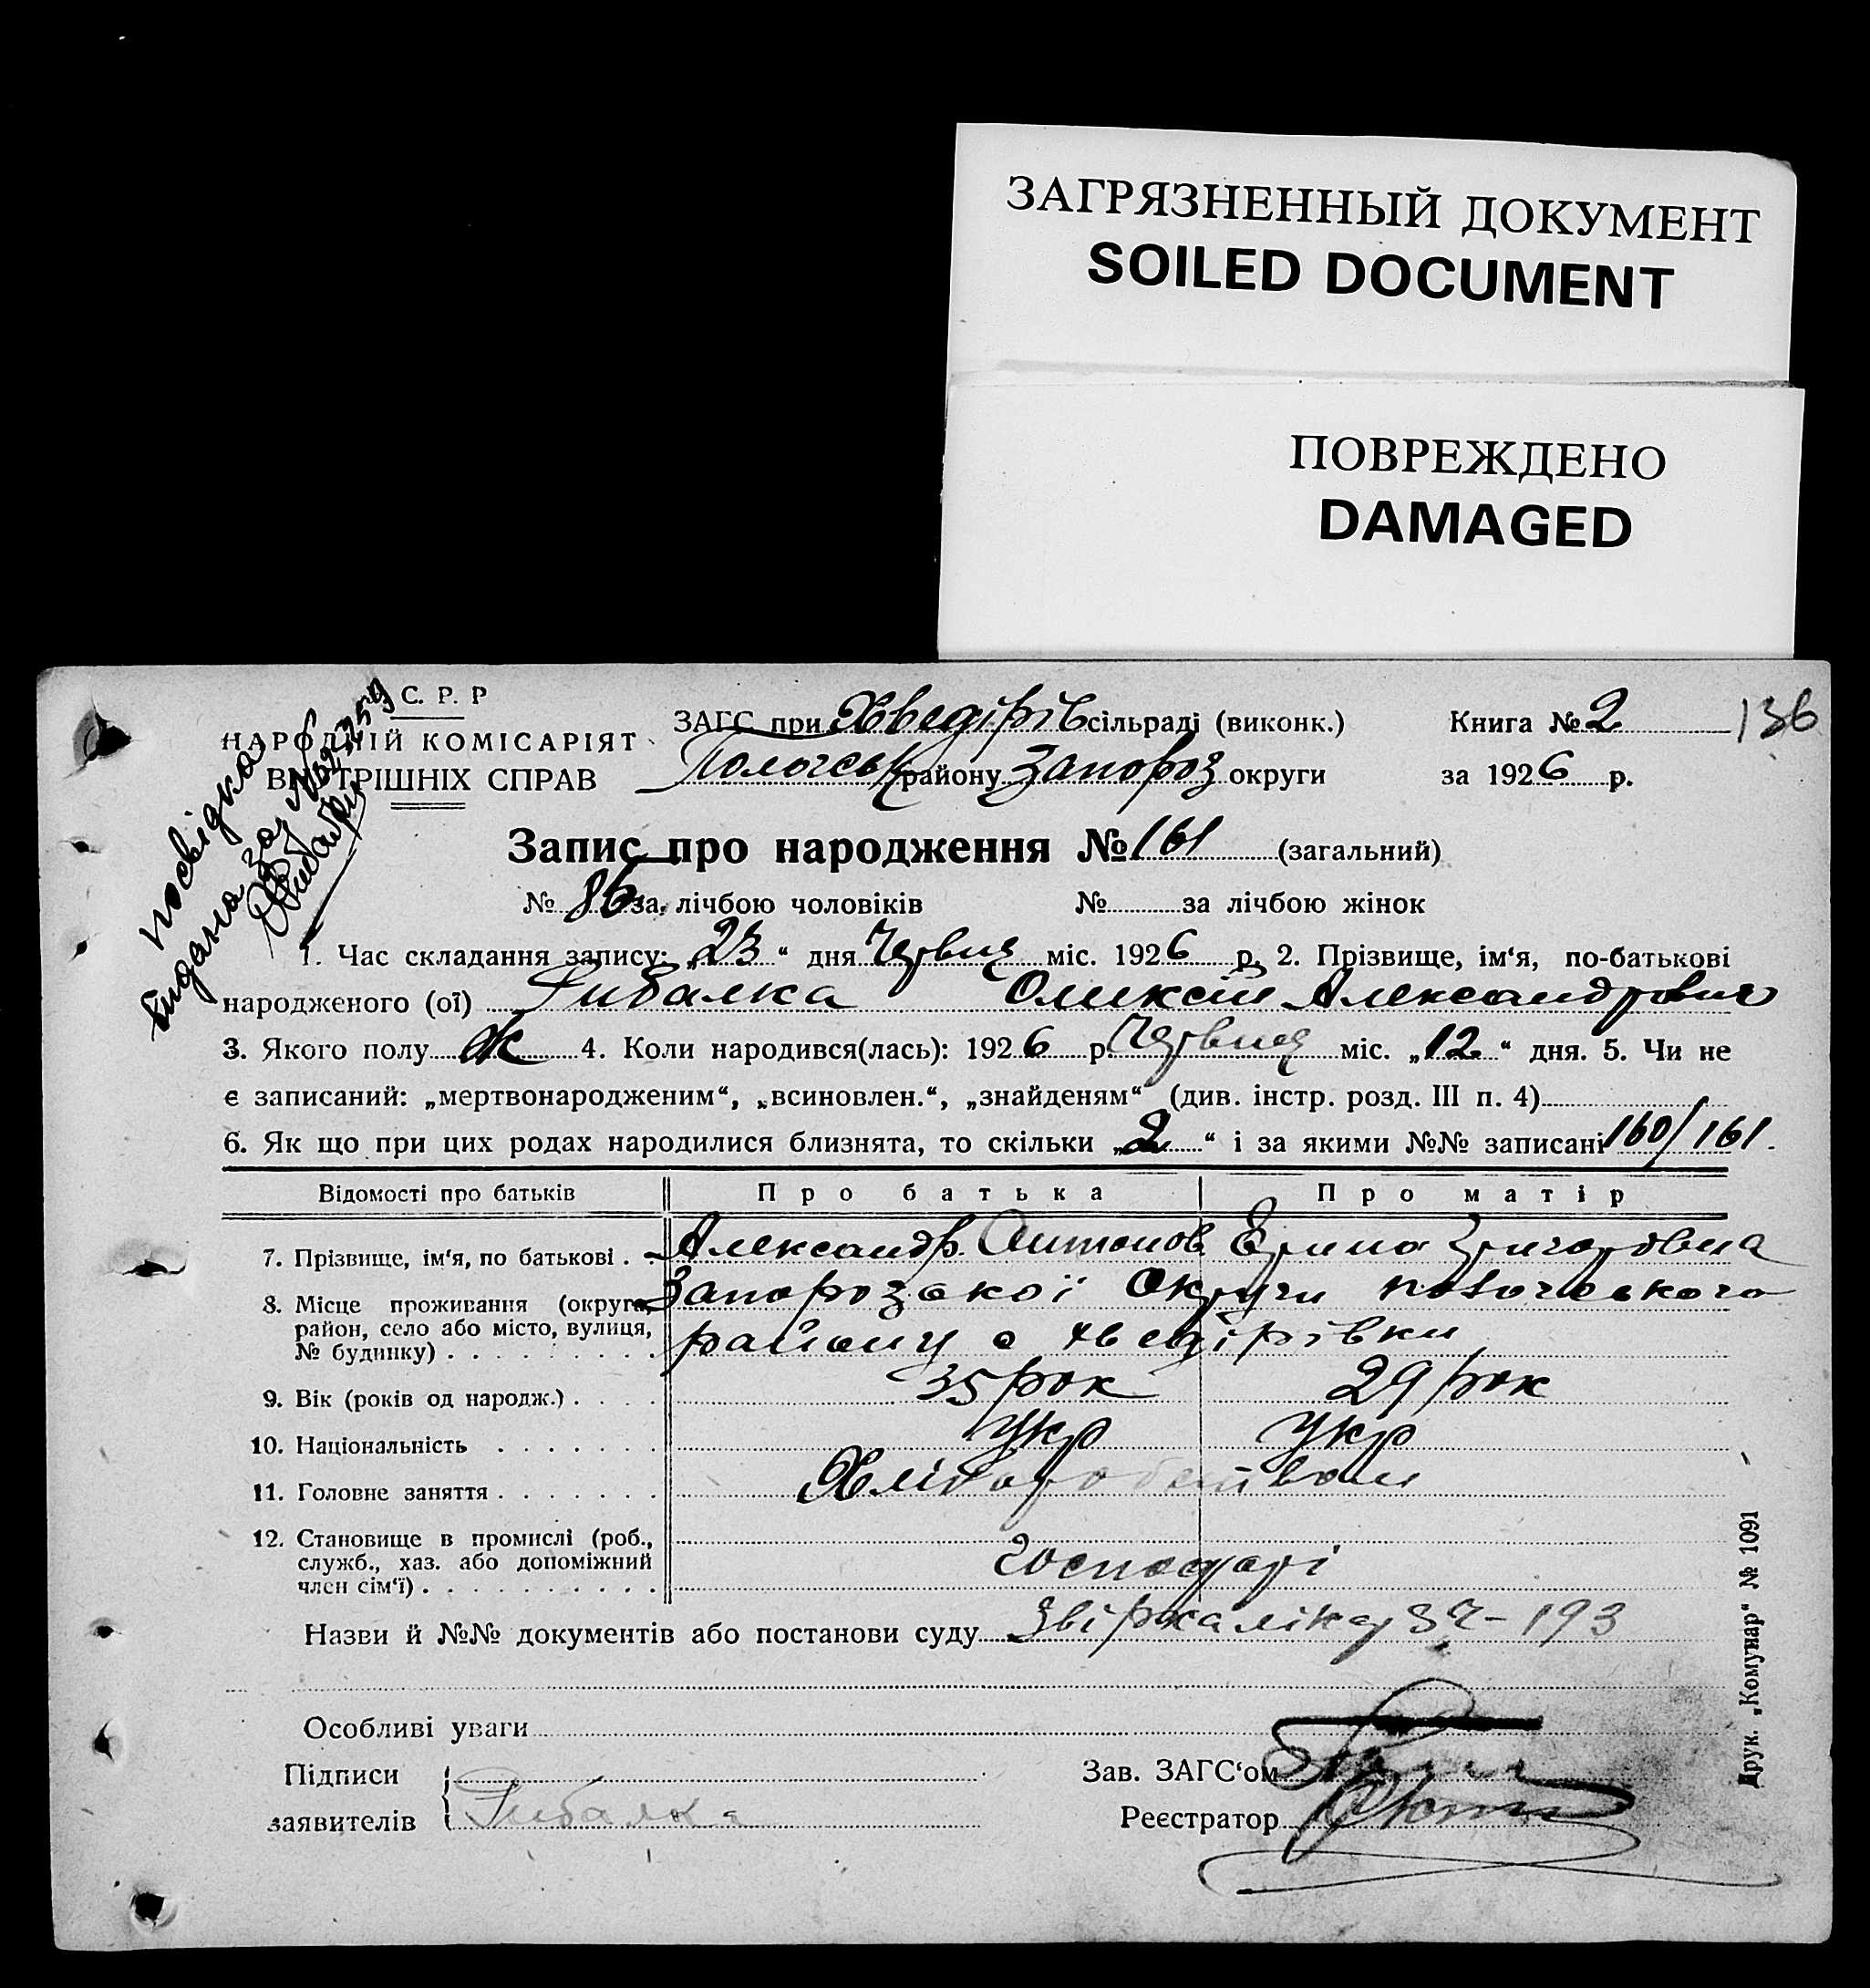 ЗАГРЯЗНЕННЫЙ ДОКУМЕНТ
SOILED DOCUMENT
ПОВРЕЖДЕНО
DAMAGED
С. Р. Р
НАРОДНІЙ КОМІСАРІЯТ
ВНУТРІШНІХ СПРАВ
посвідка
видана за №
ЗАГС при Хведірів сільраді (виконк.)
Пологськ району Запороз округи
Книга № 2
136
за 1926 р.
Запис про народження № 161 (загальний)
№ 86 за лічбою чоловіків № за лічбою жінок
1. Час складання запису: „23“ дня Червня міс. 1926 р. 2. Прізвище, ім‘я, по-батькові
народженого (ої) Рибалка Олексій Александрович
3. Якого полу Ч 4. Коли народився(лась): 1926 р. Червня міс. „12“ дня. 5. Чи не
є записаний: „мертвонародженим“, „всиновлен.“, „знайденям“ (див. інстр. розд. III п. 4)
6. Як що при цих родах народилися близнята, то скільки „2“ і за якими №№ записані 160/161.
Відомості про батьків Про батька Про матір
7. Прізвище, ім‘я, по батькові . . Александр. Антонов. Ерина Григоровна
8. Місце проживання (округа, район, село або місто, вулиця, № будинку) . . . . . . . . . Запорозської Округи пологоского
району с Хведірівки
9. Вік (років од народж.) . . . . 35 рок 29 рок
10. Національність . . . . . . . Укр Укр
11. Головне заняття . . . . . . . Хліборобством
12. Становище в промислі (роб., служб., хаз. або допоміжний член сім‘ї) . . . . . . . . . . Господарі
Назви й №№ документів або постанови суду 193
Особливі уваги
Підписи
заявителів Рибалка
Зав. ЗАГС‘ом
Реєстратор
Друк. „Комунар“ № 1091